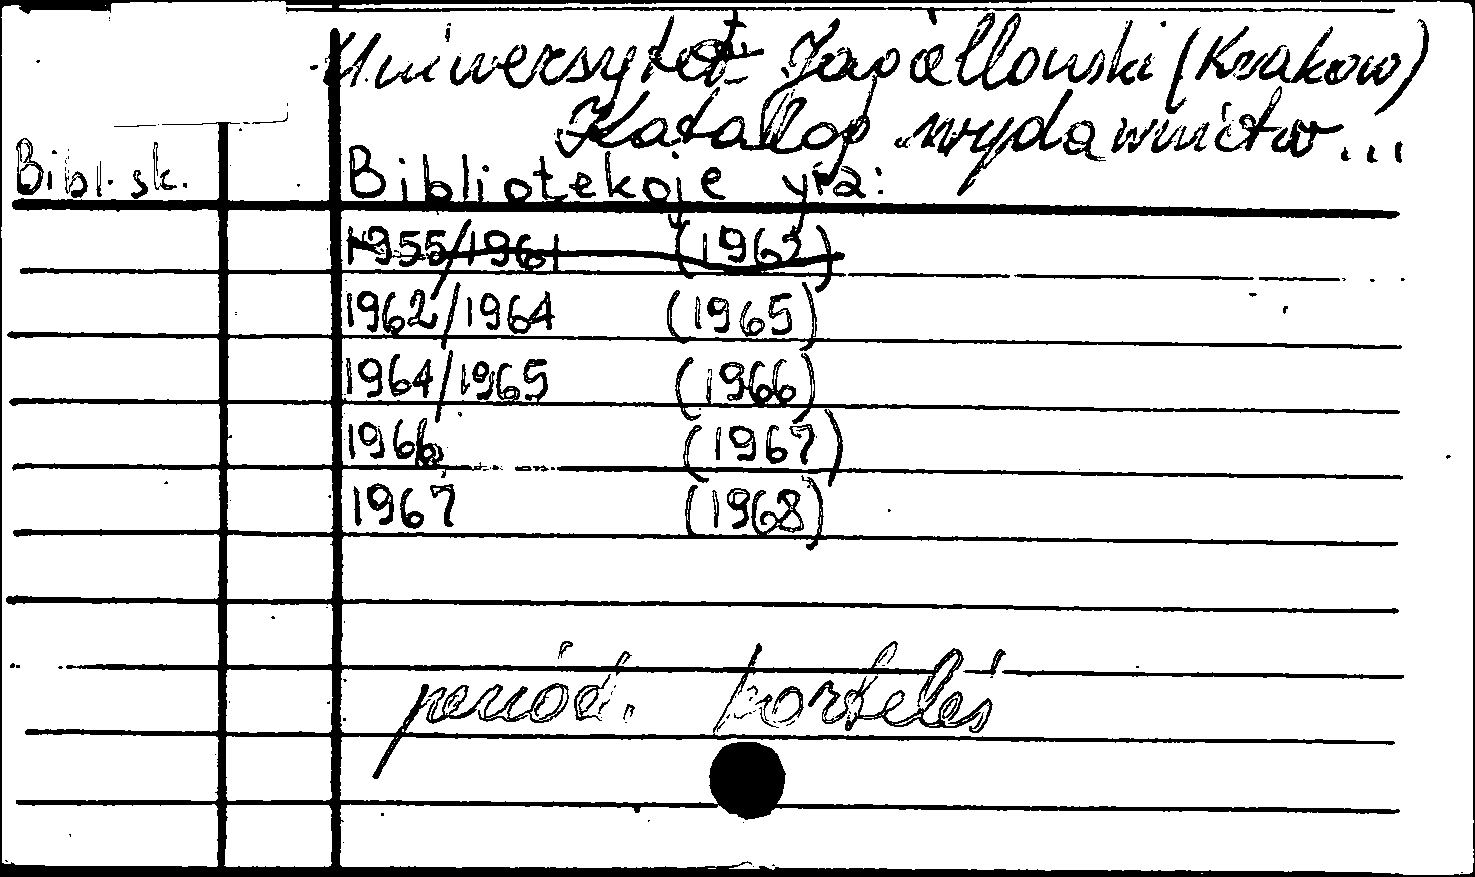 Uniwersytet Jagiellonski (Krakow)
Katalog wydawnictw...
Bibl. sk. Bibliotekoje yra:
1955/1961 (1962)
1962/1964 (1965)
1964/1965 (1966)
1966 (1967)
1967 (1968)
period. kortelės